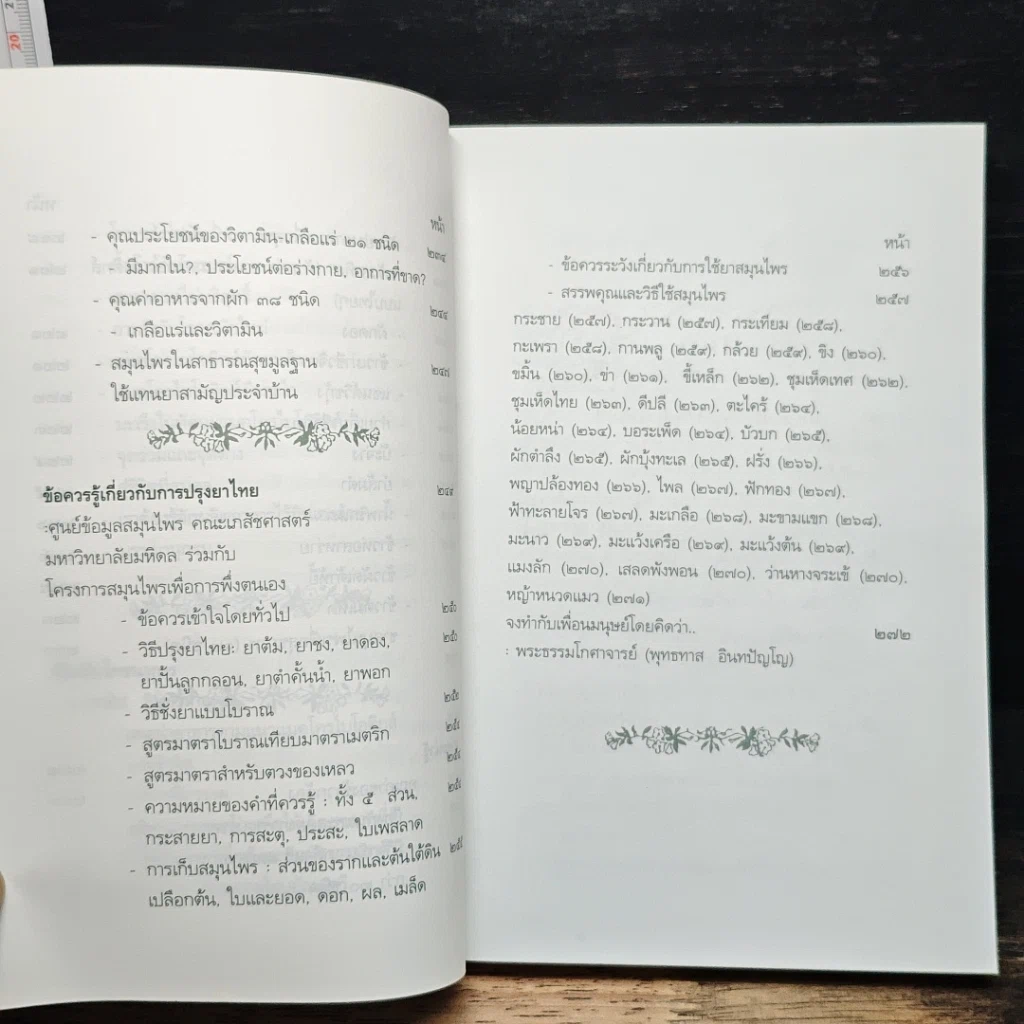 20
หน้า
- คุณประโยชน์ของวิตามิน-เกลือแร่ ๒๑ ชนิด ๒๓๔
- มีมากใน?, ประโยชน์ต่อร่างกาย, อาการที่ขาด?
- คุณค่าอาหารจากผัก ๓๘ ชนิด ๒๔๔
- เกลือแร่และวิตามิน
- สมุนไพรในสาธารณสุขมูลฐาน ๒๔๗
ใช้แทนยาสามัญประจำบ้าน
ข้อควรรู้เกี่ยวกับการปรุงยาไทย
:ศูนย์ข้อมูลสมุนไพร คณะเภสัชศาสตร์
มหาวิทยาลัยมหิดล ร่วมกับ
โครงการสมุนไพรเพื่อการพึ่งตนเอง
- ข้อควรเข้าใจโดยทั่วไป
- วิธีปรุงยาไทย: ยาต้ม, ยาชง, ยาดอง,
ยาปั้นลูกกลอน, ยาตำคั้นน้ำ, ยาพอก
- วิธีชั่งยาแบบโบราณ
- สูตรมาตราโบราณเทียบมาตราเมตริก
- สูตรมาตราสำหรับตวงของเหลว
- ความหมายของคำที่ควรรู้ : ทั้ง ๕ ส่วน,
กระสายยา, การสะตุ, ประสะ, ใบเพสลาด
- การเก็บสมุนไพร : ส่วนของรากและต้นใต้ดิน
เปลือกต้น, ใบและยอด, ดอก, ผล, เมล็ด
หน้า
- ข้อควรระวังเกี่ยวกับการใช้ยาสมุนไพร ๒๕๖
- สรรพคุณและวิธีใช้สมุนไพร ๒๕๗
กระชาย (๒๕๗), กระวาน (๒๕๗), กระเทียม (๒๕๘),
กะเพรา (๒๕๘), กานพลู (๒๕๙), กล้วย (๒๕๙), ขิง (๒๖๐),
ขมิ้น (๒๖๐), ข่า (๒๖๑), ขี้เหล็ก (๒๖๒), ชุมเห็ดเทศ (๒๖๒),
ชุมเห็ดไทย (๒๖๓), ดีปลี (๒๖๓), ตะไคร้ (๒๖๔),
น้อยหน่า (๒๖๔), บอระเพ็ด (๒๖๔), บัวบก (๒๖๕),
ผักตำลึง (๒๖๕), ผักบุ้งทะเล (๒๖๕), ฝรั่ง (๒๖๖),
พญาปล้องทอง (๒๖๖), ไพล (๒๖๗), ฟักทอง (๒๖๗),
ฟ้าทะลายโจร (๒๖๗), มะเกลือ (๒๖๘), มะขามแขก (๒๖๘),
มะนาว (๒๖๙), มะแว้งเครือ (๒๖๙), มะแว้งต้น (๒๖๙),
แมงลัก (๒๗๐), เสลดพังพอน (๒๗๐), ว่านหางจระเข้ (๒๗๐),
หญ้าหนวดแมว (๒๗๑)
จงทำกับเพื่อนมนุษย์โดยคิดว่า.. ๒๗๒
: พระธรรมโกศาจารย์ (พุทธทาส อินทปัญโญ)